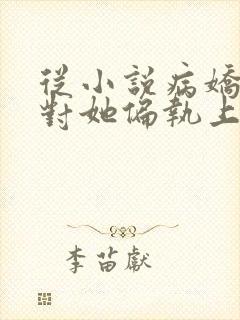 從小說病嬌
對她偏執上
李苗獻